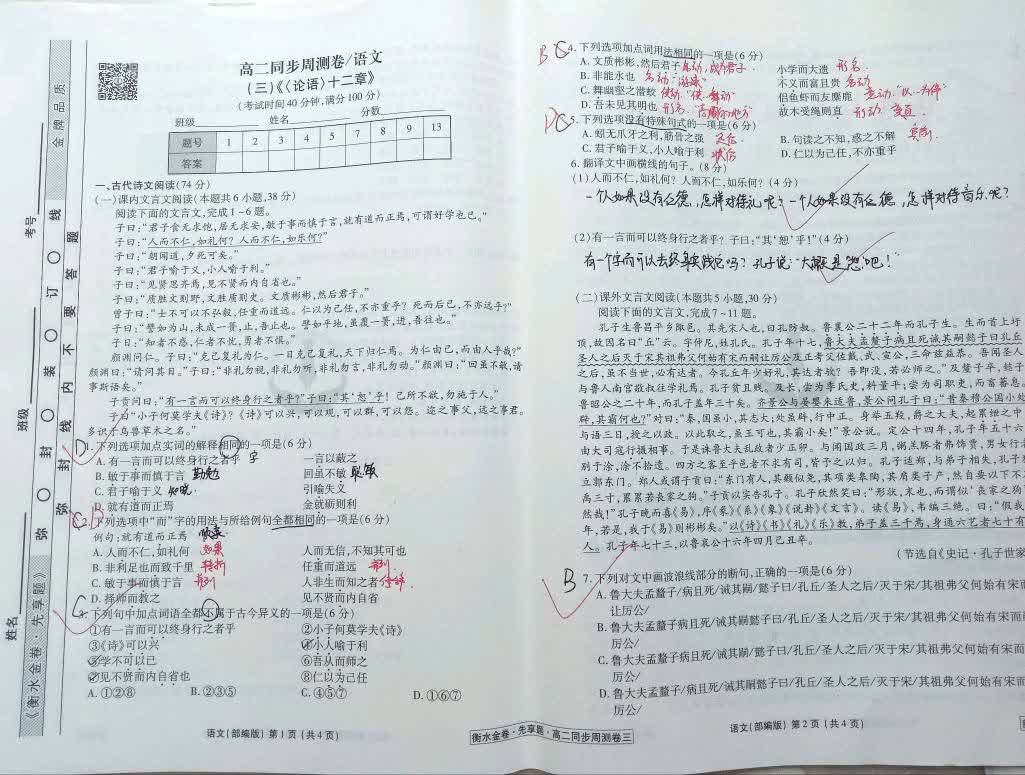 金牌品质
考号
班级
姓名
弥 封 装 订 线
弥 封 线 内 不 要 答 题
《衡水金卷·先享题》
高二同步周测卷/语文
(三)《〈论语〉十二章》
(考试时间40分钟,满分100分)
班级 姓名 分数
题号 1 2 3 4 5 7 8 9 13
答案
一、古代诗文阅读(74分)
(一)课内文言文阅读(本题共6小题,38分)
阅读下面的文言文,完成1~6题。
子曰:“君子食无求饱,居无求安,敏于事而慎于言,就有道而正焉,可谓好学也已。”
子曰:“人而不仁,如礼何?人而不仁,如乐何?”
子曰:“朝闻道,夕死可矣。”
子曰:“君子喻于义,小人喻于利。”
子曰:“见贤思齐焉,见不贤而内自省也。”
子曰:“质胜文则野,文胜质则史。文质彬彬,然后君子。”
曾子曰:“士不可以不弘毅,任重而道远。仁以为己任,不亦重乎?死而后已,不亦远乎?”
子曰:“譬如为山,未成一篑,止,吾止也。譬如平地,虽覆一篑,进,吾往也。”
子曰:“知者不惑,仁者不忧,勇者不惧。”
颜渊问仁。子曰:“克己复礼为仁。一日克己复礼,天下归仁焉。为仁由己,而由人乎哉?”
颜渊曰:“请问其目。”子曰:“非礼勿视,非礼勿听,非礼勿言,非礼勿动。”颜渊曰:“回虽不敏,请
事斯语矣。”
子贡问曰:“有一言而可以终身行之者乎?”子曰:“其‘恕’乎!己所不欲,勿施于人。”
子曰:“小子何莫学夫《诗》?《诗》可以兴,可以观,可以群,可以怨。迩之事父,远之事君。
多识于鸟兽草木之名。”
D
1.下列选项加点实词的解释相同的一项是(6分)
A.有一言而可以终身行之者乎 字 一言以蔽之
B.敏于事而慎于言 勤勉 回虽不敏 聪敏
C.君子喻于义 知晓 引喻失义
D.就有道而正焉 金就砺则利
C D
2.下列选项中“而”字的用法与所给例句全都相同的一项是(6分)
例句:就有道而正焉 顺承
A.人而不仁,如礼何 如果 人而无信,不知其可也
B.非利足也而致千里 转折 任重而道远 并列
C.敏于事而慎于言 并列 人非生而知之者 修饰
D.择师而教之 见不贤而内自省
C
3.下列句中加点词语全都不属于古今异义的一项是(6分)
①有一言而可以终身行之者乎 ②小子何莫学夫《诗》
③《诗》可以兴 ④小人喻于利
⑤学不可以已 ⑥吾从而师之
⑦见不贤而内自省也 ⑧仁以为己任
A.①②⑧ B.②③⑤ C.④⑤⑦ D.①⑥⑦
语文(部编版) 第1页(共4页)
衡水金卷·先享题·高二同步周测卷三
B C
4.下列选项加点词用法相同的一项是(6分)
A.文质彬彬,然后君子 名动,成为君子 小学而大遗 形名
B.非能水也 名动“游泳” 不又而富且贵 名动
C.舞幽壑之潜蛟 使动“使…舞动” 侣鱼虾而友麋鹿 意动“以…为伴”
D.吾未见其明也 形名“高明的地方” 故木受绳则直 形动 变直
D C
5.下列选项没有特殊句式的一项是(6分)
A.蚓无爪牙之利,筋骨之强 定后 B.句读之不知,惑之不解 宾前
C.君子喻于义,小人喻于利 状后 D.仁以为己任,不亦重乎
6.翻译文中画横线的句子。(8分)
(1)人而不仁,如礼何?人而不仁,如乐何?(4分)
一个人如果没有仁德,怎样对待礼呢?一个人如果没有仁德,怎样对待音乐呢?
(2)有一言而可以终身行之者乎?子曰:“其‘恕’乎!”(4分)
有一个字而可以去终身实践它吗?孔子说:“大概是‘恕’吧!”
(二)课外文言文阅读(本题共5小题,30分)
阅读下面的文言文,完成7~11题。
孔子生鲁昌平乡陬邑。其先宋人也,曰孔防叔。鲁襄公二十二年而孔子生。生而首上圩
顶,故因名曰“丘”云。字仲尼,姓孔氏。孔子年十七,鲁大夫孟釐子病且死诫其嗣懿子曰孔丘
圣人之后灭于宋其祖弗父何始有宋而嗣让厉公及正考父佐戴、武、宣公,三命兹益恭。吾闻圣人
之后,虽不当世,必有达者。今孔丘年少好礼,其达者欤?吾即没,若必师之。”及釐子卒,懿子
与鲁人南宫敬叔往学礼焉。孔子贫且贱。及长,尝为季氏史,料量平;尝为司职吏,而畜蕃息。
鲁昭公之二十年,而孔子盖年三十矣。齐景公与晏婴来适鲁,景公问孔子曰:“昔秦穆公国小处
辟,其霸何也?”对曰:“秦,国虽小,其志大;处虽辟,行中正。身举五羖,爵之大夫,起累绁之中
与语三日,授之以政。以此取之,虽王可也,其霸小矣!”景公说。定公十四年,孔子年五十六
由大司寇行摄相事。于是诛鲁大夫乱政者少正卯。与闻国政三月,粥羔豚者弗饰贾,男女行者
别于涂,涂不拾遗。四方之客至乎邑者不求有司,皆予之以归。孔子适郑,与弟子相失,孔子独
立郭东门。郑人或谓子贡曰:“东门有人,其颡似尧,其项类皋陶,其肩类子产,然自要以下不及
禹三寸,累累若丧家之狗。”子贡以实告孔子。孔子欣然笑曰:“形状,末也,而谓似‘丧家之狗
然哉!”孔子晚而喜《易》,序《彖》《系》《象》《说卦》《文言》。读《易》,韦编三绝。曰:“假我
年,若是,我于《易》则彬彬矣。”以《诗》《书》《礼》《乐》教,弟子盖三千焉,身通六艺者七十有
人。孔子年七十三,以鲁哀公十六年四月己丑卒。
(节选自《史记·孔子世家
B
7.下列对文中画波浪线部分的断句,正确的一项是(6分)
A.鲁大夫孟釐子病且死/诫其嗣/懿子曰/孔丘/圣人之后/灭于宋/其祖弗父何始有宋而嗣
让厉公/
B.鲁大夫孟釐子病且死/诫其嗣懿子曰/孔丘/圣人之后/灭于宋/其祖弗父何始有宋而
厉公/
C.鲁大夫孟釐子病且死/诫其嗣/懿子曰/孔丘/圣人之后/灭于宋/其祖弗父何始有宋而
厉公/
D.鲁大夫孟釐子/病且死/诫其嗣懿子曰/孔丘/圣人之后/灭于宋/其祖弗父何始有宋而
厉公/
语文(部编版) 第2页(共4页)